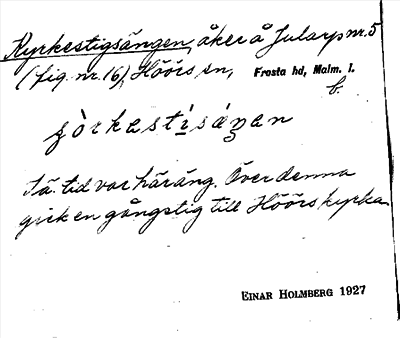 Kyrkestigsängen, åker å Jularp nr. 5
(fig. nr. 16), Höörs sn, Frosta hd, Malm. l.
b.
Få. tid var här äng. Över denna
gick en gångstig till Höörs kyrka
EINAR HOLMBERG 1927